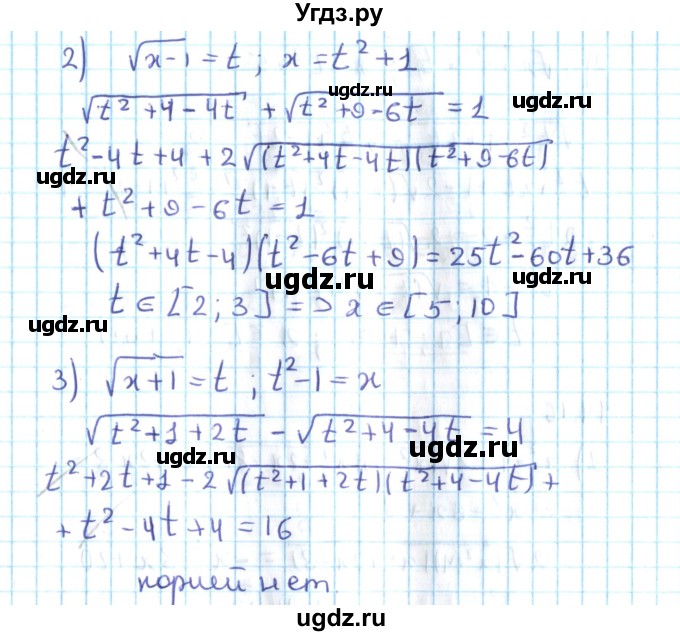 Угдз.ру
2) √(x-1) = t ; x = t² + 1
√(t² + 4 - 4t) + √(t² + 9 - 6t) = 1
ugdz.ru
ugdz.ru
t² - 4t + 4 + 2√((t² + 4t - 4t)(t² + 9 - 6t))
ugdz.ru
+ t² + 9 - 6t = 1
(t² + 4t - 4)(t² - 6t + 9) = 25t² - 60t + 36
ugdz.ru
t ∈ [2; 3] => x ∈ [5; 10]
ugdz.ru
3) √(x+1) = t ; t² - 1 = x
√(t² + 1 + 2t) - √(t² + 4 - 4t) = 4
ugdz.ru
ugdz.ru
t² + 2t + 1 - 2√((t² + 1 + 2t)(t² + 4 - 4t)) +
+ t² - 4t + 4 = 16
ugdz.ru
ugdz.ru
корней нет
ugdz.ru